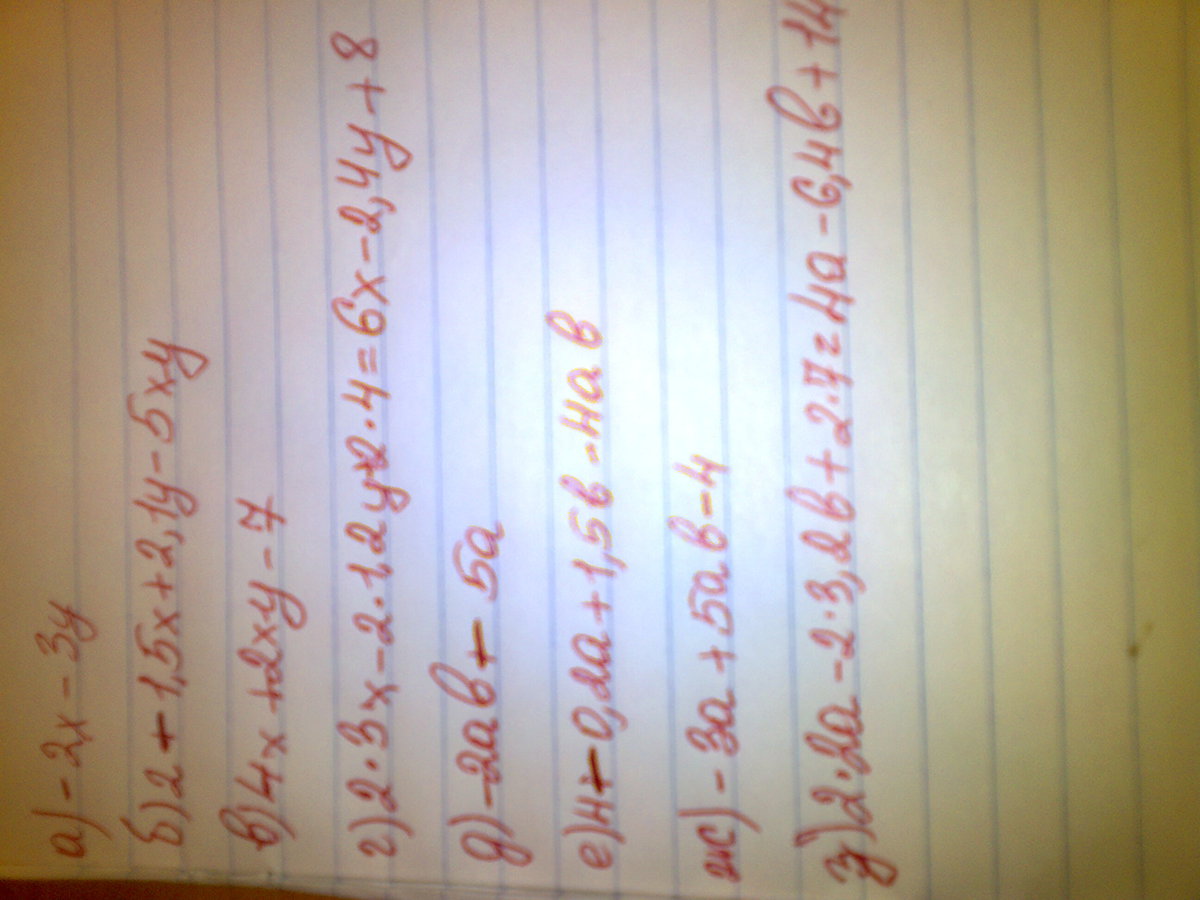 а) - 2x - 3y
б) 2 + 1,5x + 2,1y - 5xy
в) 4x + 2xy - 7
г) 2·3x - 2·1,2y + 2·4 = 6x - 2,4y + 8
д) -2ab + 5a
е) 4 + 0,2a + 1,5b - 4ab
ж) - 3a + 5ab - 4
з) 2·2a - 2·3,2b + 2·7 = 4a - 6,4b + 14